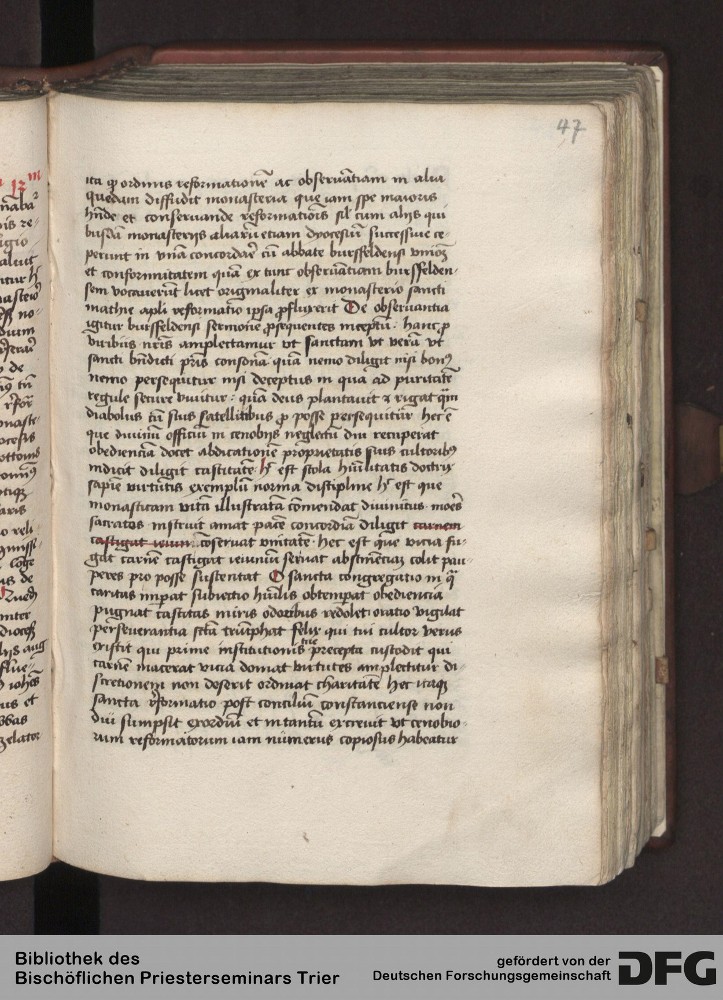 47
ita ꝙ ordinis reformationē ac obseruātiam in alia
quedam diffudit monasteria que iam spe maioris
et conseruande reformatiōis sil cum alijs qui
busdā monasterijs aliarū etiam dyocesiū successiue ce-
perunt in vniā concordare cū abbate bursfeldensi vnioē
et conformitatem quā ex tunc obseruātiam bursfelden-
sem vocauerūt licet originaliter ex monasterio sancti
mathie apli reformatio ipsa ꝓfluxerit De obseruantia
igitur bursfeldensi sermone ꝓsequentes inceptū: hanc ꝓ
viribus nris amplectamur vt sanctam vt verā vt
sancti bndicti pris consonā quā nemo diligit nisi bonꝰ
nemo persequitur nisi deceptus in qua ad puritatē
regule secure viuitur: quā deus plantauit et rigat quā
diabolus cū suis satellitibus ꝓ posse persequitur hec ē
que diuinū officiū in cenobijs neglectū diu recuperat
obedienciā docet abdicationē proprietatis suis cultoribꝰ
indicit diligit castitatē hec est stola hūilitatis doctrix
sapie virtutis exemplū norma discipline hec est que
monasticam vitā illustratā cōmendat diuinitus moēs
sacratos instruit amat pacē concordiā diligit carnem
castigat ieiun cōseruat vnitatē hec est que vicia fu-
gat carnē castigat ieiuniū seruat abstinēciā colit pau-
peres pro posse sustentat O sancta congregatio in qua
caritas imperat subiectio hūilis obtemperat obediencia
pugnat castitas miris odoribus redolet oratio vigilat
perseuerantia scta triūphat felix qui tui cultor verus
existit qui prime institutionis tue precepta custodit qui
carnē macerat vicia domat virtutes amplectitur di-
scretionem non deserit ordinat charitatē Hec itaqꝫ
sancta reformatio post conciliū constanciense non
diu sumpsit exordiū et in tantū excreuit vt cenobio-
rum reformatorum iam numerus copiosus habeatur
Bibliothek des
Bischöflichen Priesterseminars Trier
gefördert von der
Deutschen Forschungsgemeinschaft
DFG